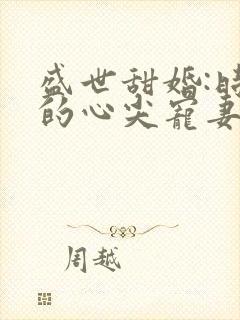 盛世甜婚:
的心尖宠妻
周越